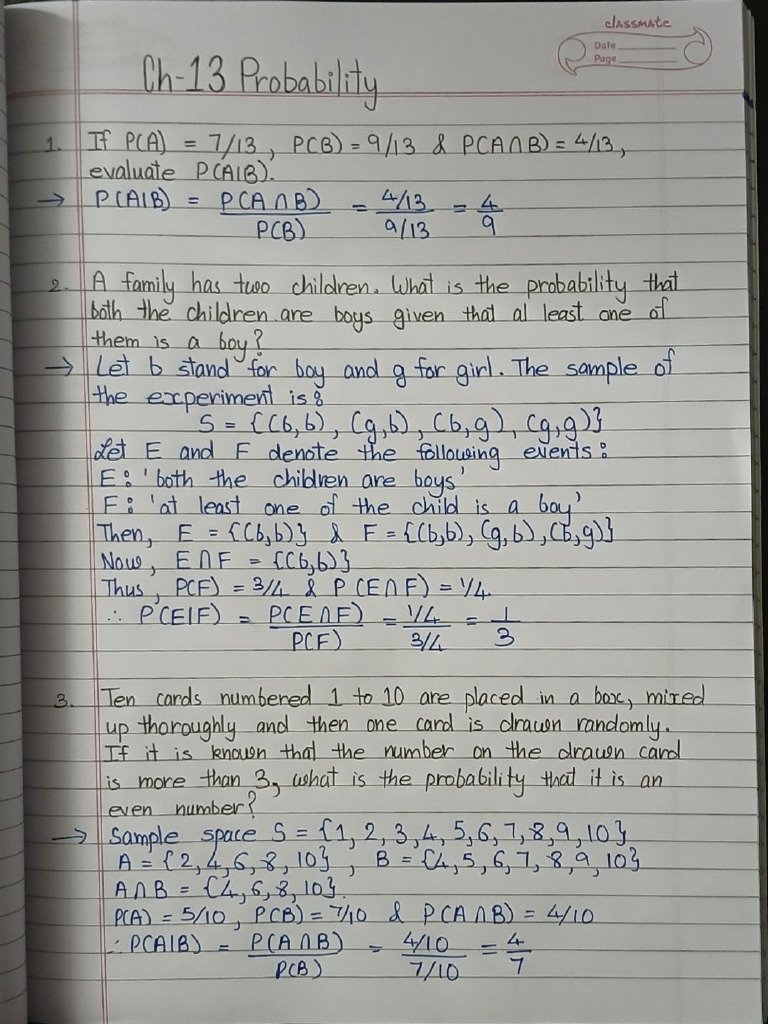 classmate
Date
Page
Ch-13 Probability
1. If P(A) = 7/13, P(B) = 9/13 & P(A∩B) = 4/13,
evaluate P(A|B).
→ P(A|B) = P(A∩B)/P(B) = (4/13)/(9/13) = 4/9
2. A family has two children. What is the probability that
both the children are boys given that al least one of
them is a boy?
→ Let b stand for boy and g for girl. The sample of
the experiment is :
S = {(b,b), (g,b), (b,g), (g,g)}
Let E and F denote the following events :
E : 'both the children are boys'
F : 'at least one of the child is a boy'
Then, E = {(b,b)} & F = {(b,b), (g,b), (b,g)}
Now, E∩F = {(b,b)}
Thus, P(F) = 3/4 & P(E∩F) = 1/4.
∴ P(E|F) = P(E∩F)/P(F) = (1/4)/(3/4) = 1/3
3. Ten cards numbered 1 to 10 are placed in a box, mixed
up thoroughly and then one card is drawn randomly.
If it is known that the number on the drawn card
is more than 3, what is the probability that it is an
even number?
→ Sample space S = {1, 2, 3, 4, 5, 6, 7, 8, 9, 10}
A = {2, 4, 6, 8, 10}, B = {4, 5, 6, 7, 8, 9, 10}
A∩B = {4, 6, 8, 10}.
P(A) = 5/10, P(B) = 7/10 & P(A∩B) = 4/10
∴ P(A|B) = P(A∩B)/P(B) = (4/10)/(7/10) = 4/7